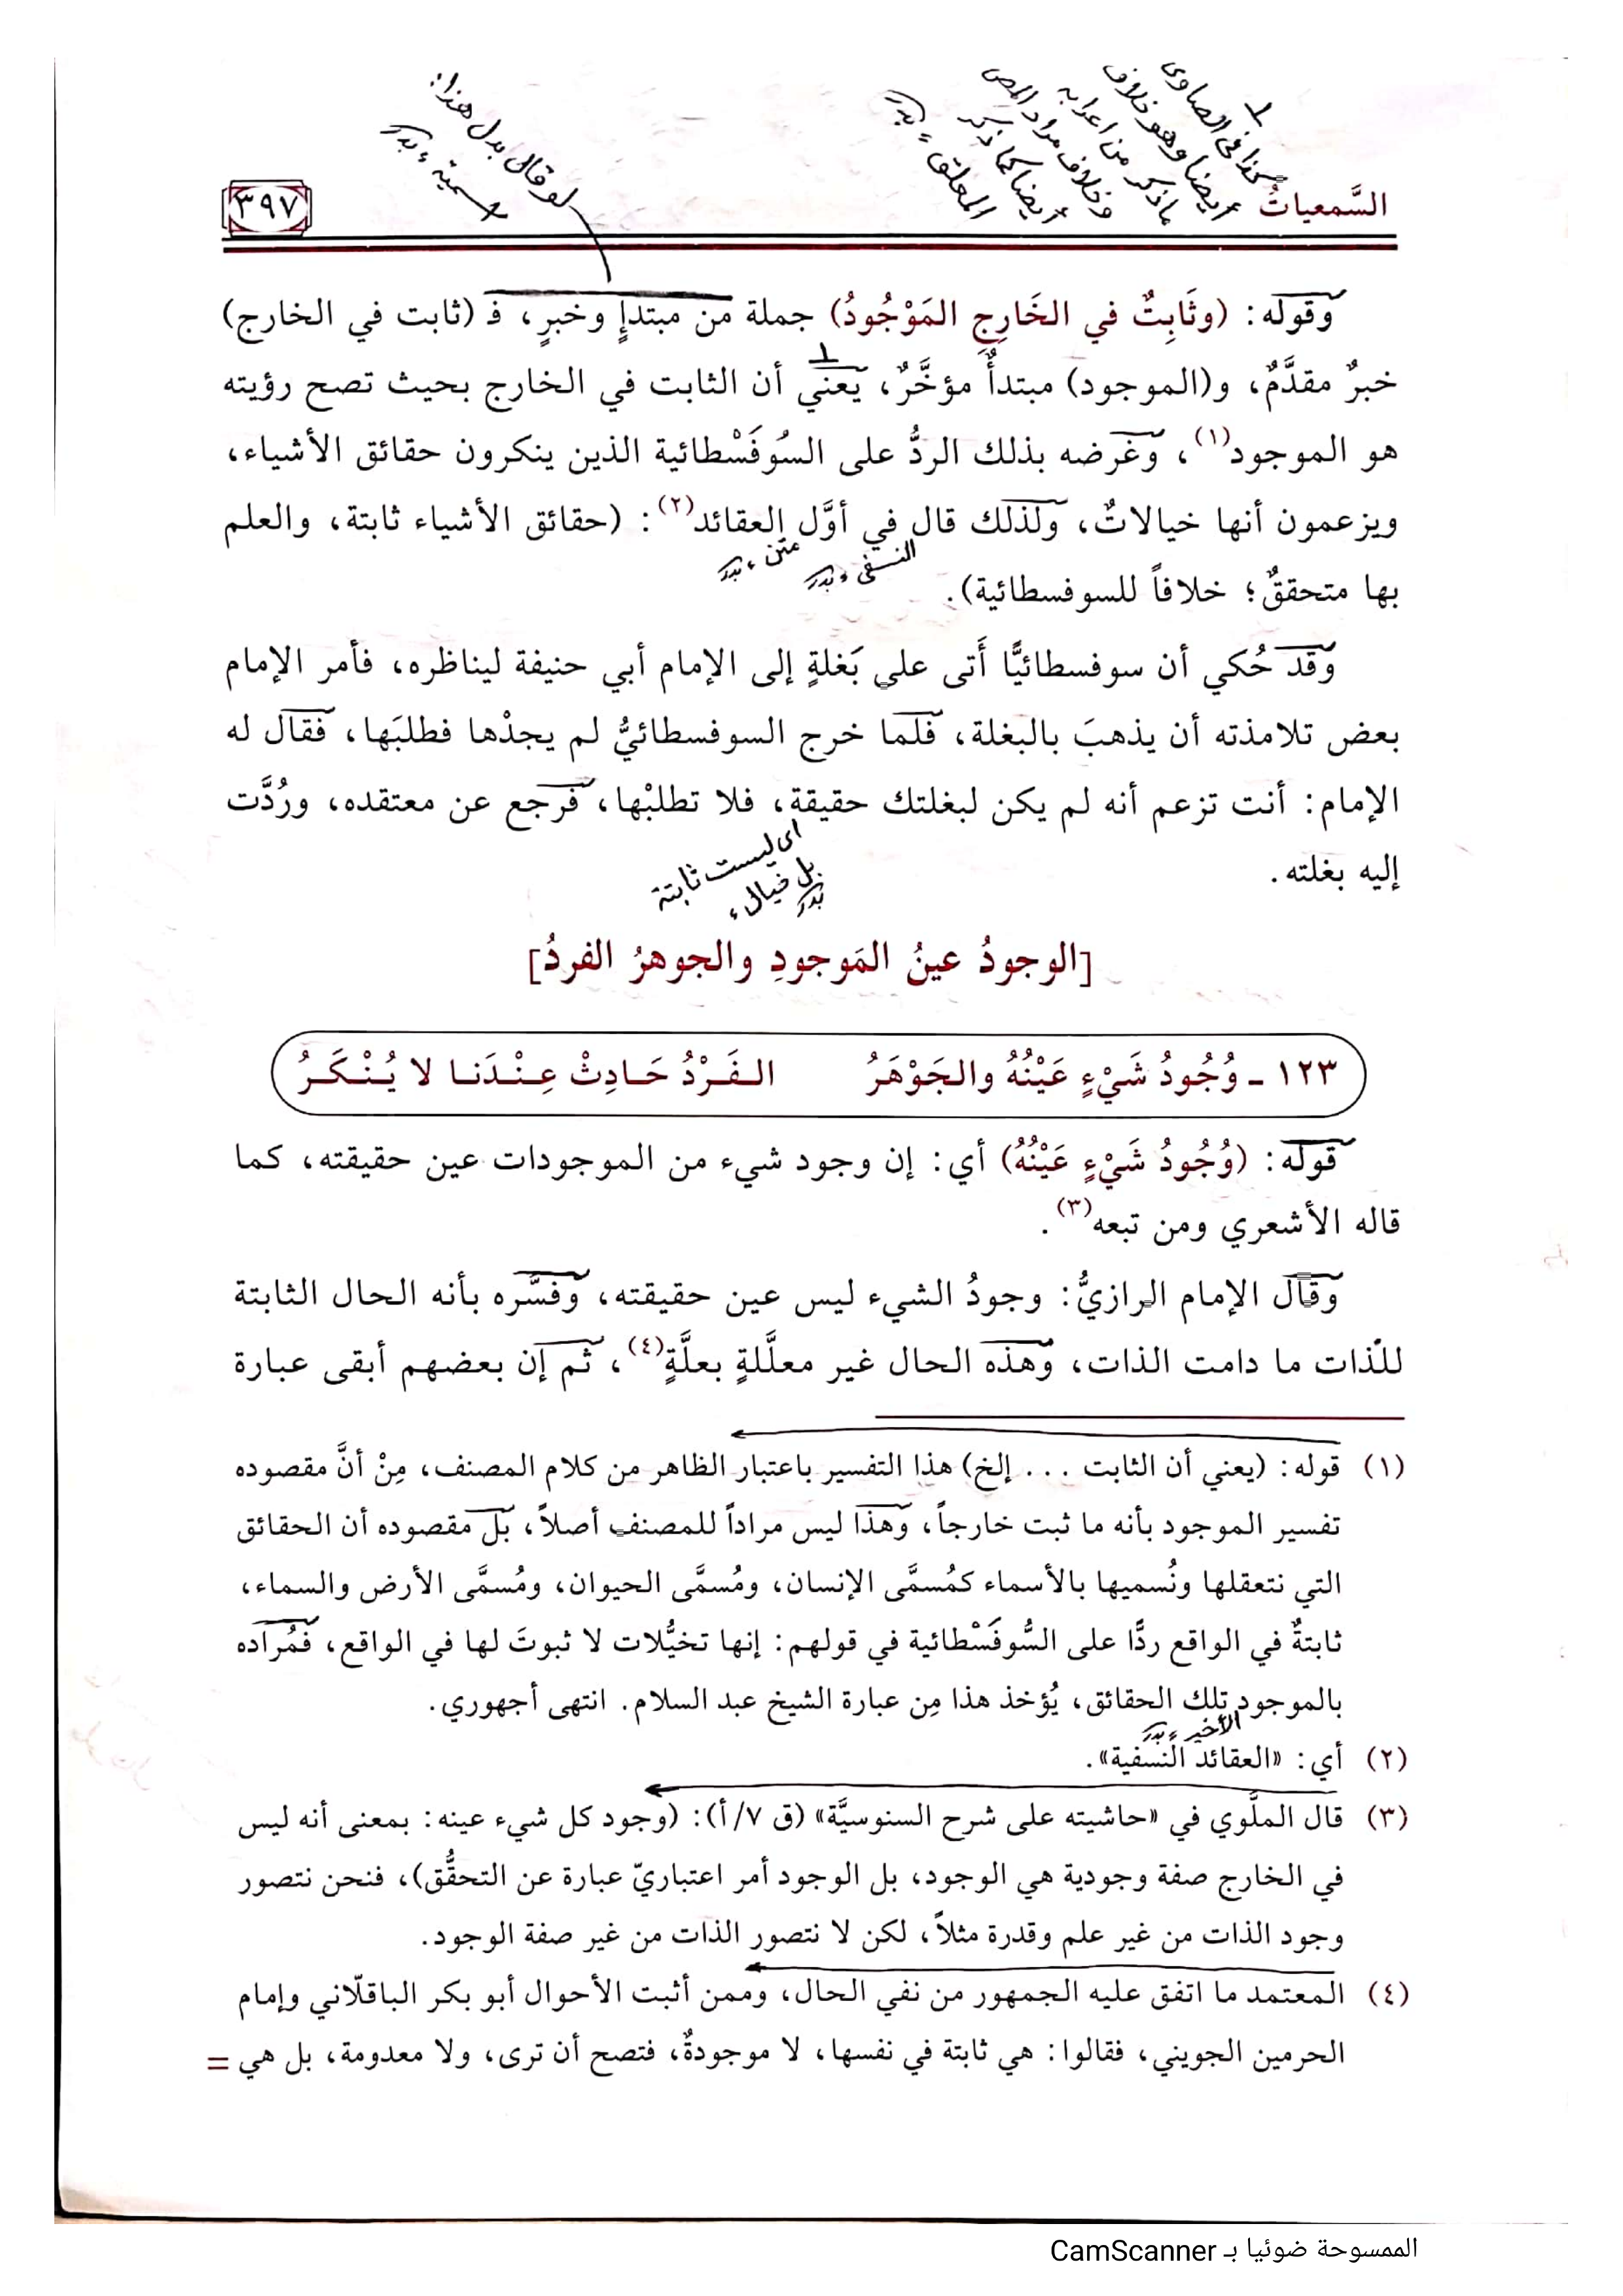 السَّمعيات
٣٩٧
كذا في الصاوى
أيضا وهو خلاف
ماذكر من اعرابه
وخلاف مراد المص
أيضا كما ذكر
المعلق، بدر
لو قال بدل هذا:
اسمية، بدر
وقوله: (وثَابِتٌ في الخَارِجِ المَوْجُودُ) جملة من مبتدإٍ وخبرٍ، فـ (ثابت في الخارج)
خبرٌ مقدَّمٌ، و(الموجود) مبتدأٌ مؤخَّرٌ، يعني أن الثابت في الخارج بحيث تصح رؤيته
هو الموجود(١)، وغَرَضه بذلك الردُّ على السُوفَسْطائية الذين ينكرون حقائق الأشياء،
ويزعمون أنها خيالاتٌ، ولذلك قال في أوَّل العقائد(٢): (حقائق الأشياء ثابتة، والعلم
متن، بدر
النسفى، بدر
بها متحققٌ؛ خلافاً للسوفسطائية).
وقد حُكي أن سوفسطائيًّا أَتى على بَغلةٍ إلى الإمام أبي حنيفة ليناظره، فأمر الإمام
بعض تلامذته أن يذهبَ بالبغلة، فلما خرج السوفسطائيُّ لم يجدْها فطلبَها، فقال له
الإمام: أنت تزعم أنه لم يكن لبغلتك حقيقة، فلا تطلبْها، فرجع عن معتقده، ورُدَّت
اى ليست ثابتة
بل خيال، بدر
إليه بغلته.
[الوجودُ عينُ المَوجودِ والجوهرُ الفردُ]
١٢٣ - وُجُودُ شَيْءٍ عَيْنُهُ والجَوْهَرُ الـفَـرْدُ حَـادِثْ عِـنْـدَنـا لا يُـنْـكَـرُ
قوله: (وُجُودُ شَيْءٍ عَيْنُهُ) أي: إن وجود شيء من الموجودات عين حقيقته، كما
قاله الأشعري ومن تبعه(٣).
وقال الإمام الرازيُّ: وجودُ الشيء ليس عين حقيقته، وفسَّره بأنه الحال الثابتة
للّذات ما دامت الذات، وهذه الحال غير معلَّلةٍ بعلَّةٍ(٤)، ثم إن بعضهم أبقى عبارة
(١) قوله: (يعني أن الثابت ... إلخ) هذا التفسير باعتبار الظاهر من كلام المصنف، مِنْ أنَّ مقصوده
تفسير الموجود بأنه ما ثبت خارجاً، وهذا ليس مراداً للمصنف أصلاً، بل مقصوده أن الحقائق
التي نتعقلها ونُسميها بالأسماء كمُسمَّى الإنسان، ومُسمَّى الحيوان، ومُسمَّى الأرض والسماء،
ثابتةٌ في الواقع ردًّا على السُّوفَسْطائية في قولهم: إنها تخيُّلات لا ثبوتَ لها في الواقع، فمُراده
بالموجود تلك الحقائق، يُؤخذ هذا مِن عبارة الشيخ عبد السلام. انتهى أجهوري.
الأخير، بدر
(٢) أي: «العقائد النَسفية».
(٣) قال الملَّوي في «حاشيته على شرح السنوسيَّة» (ق ٧/أ): (وجود كل شيء عينه: بمعنى أنه ليس
في الخارج صفة وجودية هي الوجود، بل الوجود أمر اعتباريّ عبارة عن التحقُّق)، فنحن نتصور
وجود الذات من غير علم وقدرة مثلاً، لكن لا نتصور الذات من غير صفة الوجود.
(٤) المعتمد ما اتفق عليه الجمهور من نفي الحال، وممن أثبت الأحوال أبو بكر الباقلّاني وإمام
الحرمين الجويني، فقالوا: هي ثابتة في نفسها، لا موجودةٌ، فتصح أن ترى، ولا معدومة، بل هي =
الممسوحة ضوئيا بـ CamScanner